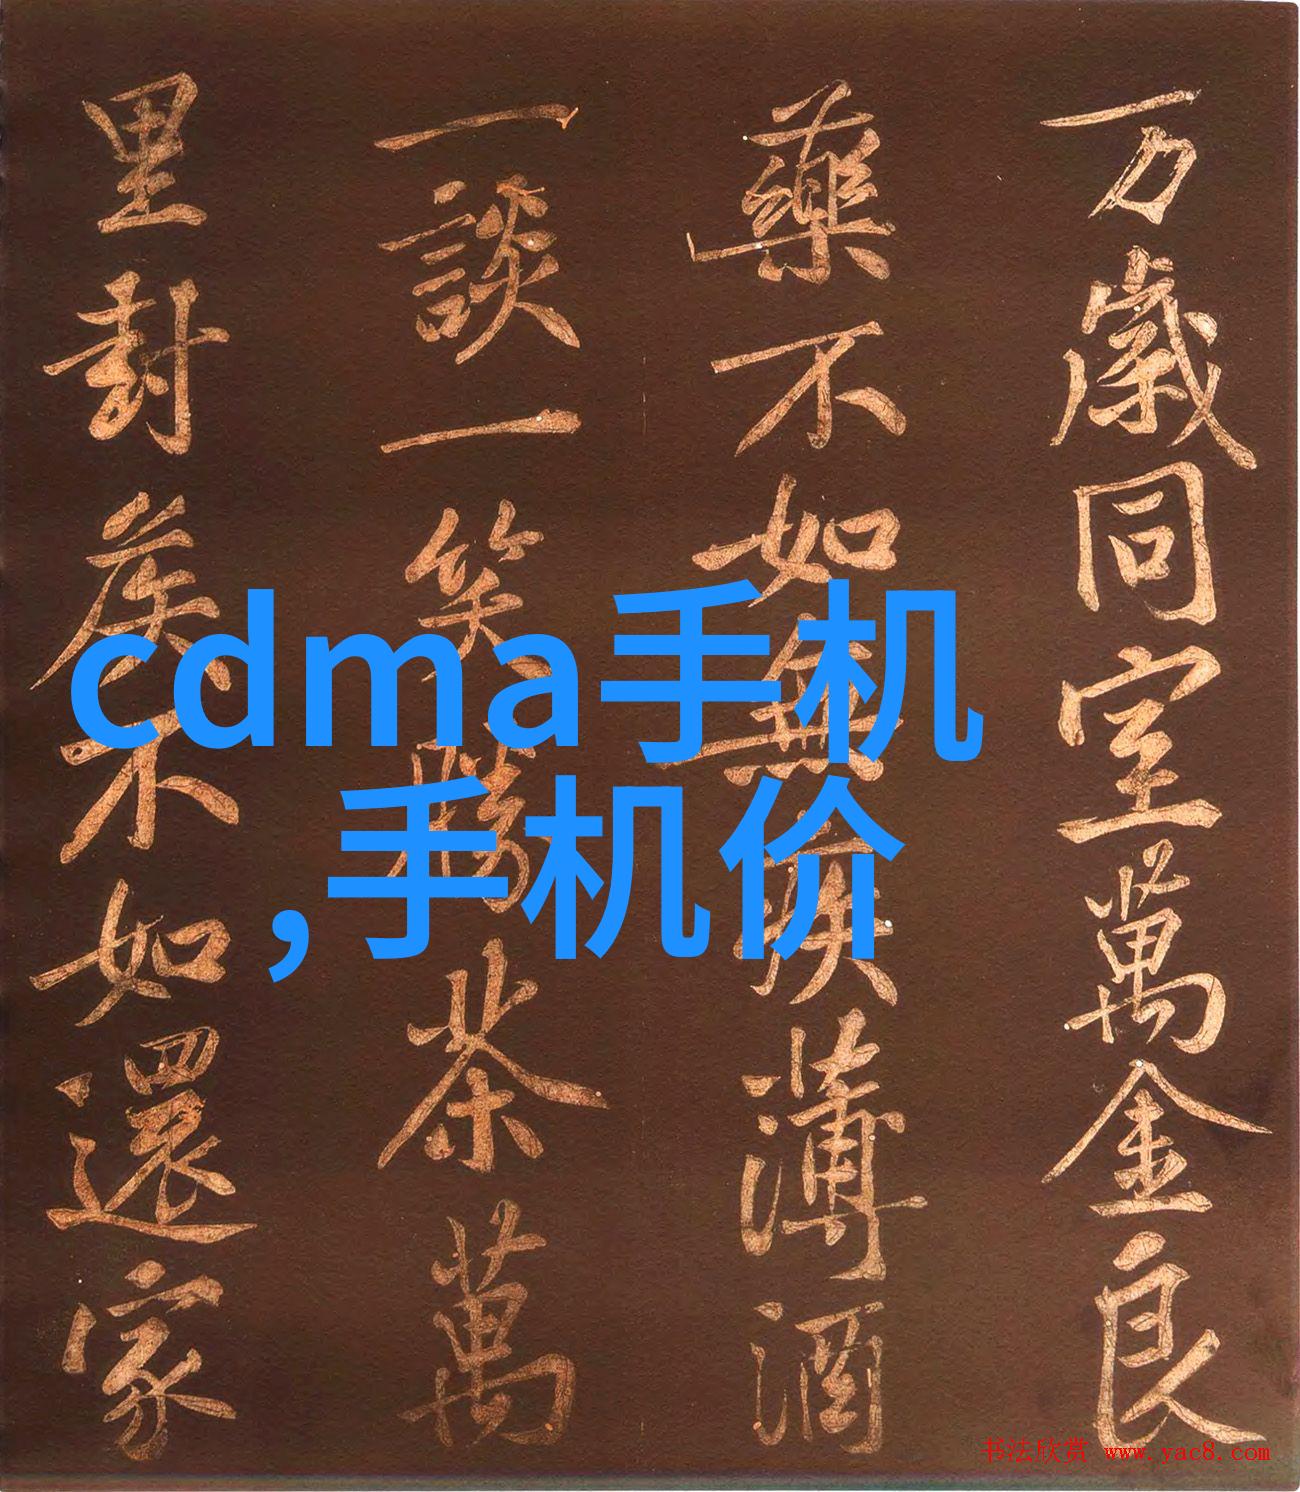 万歲同室萬金良
藥不如無疾薄酒
一談一笑勝茶萬
里封侯不如還家
cdma手机
,手机价
书法欣赏 www.yac8.com